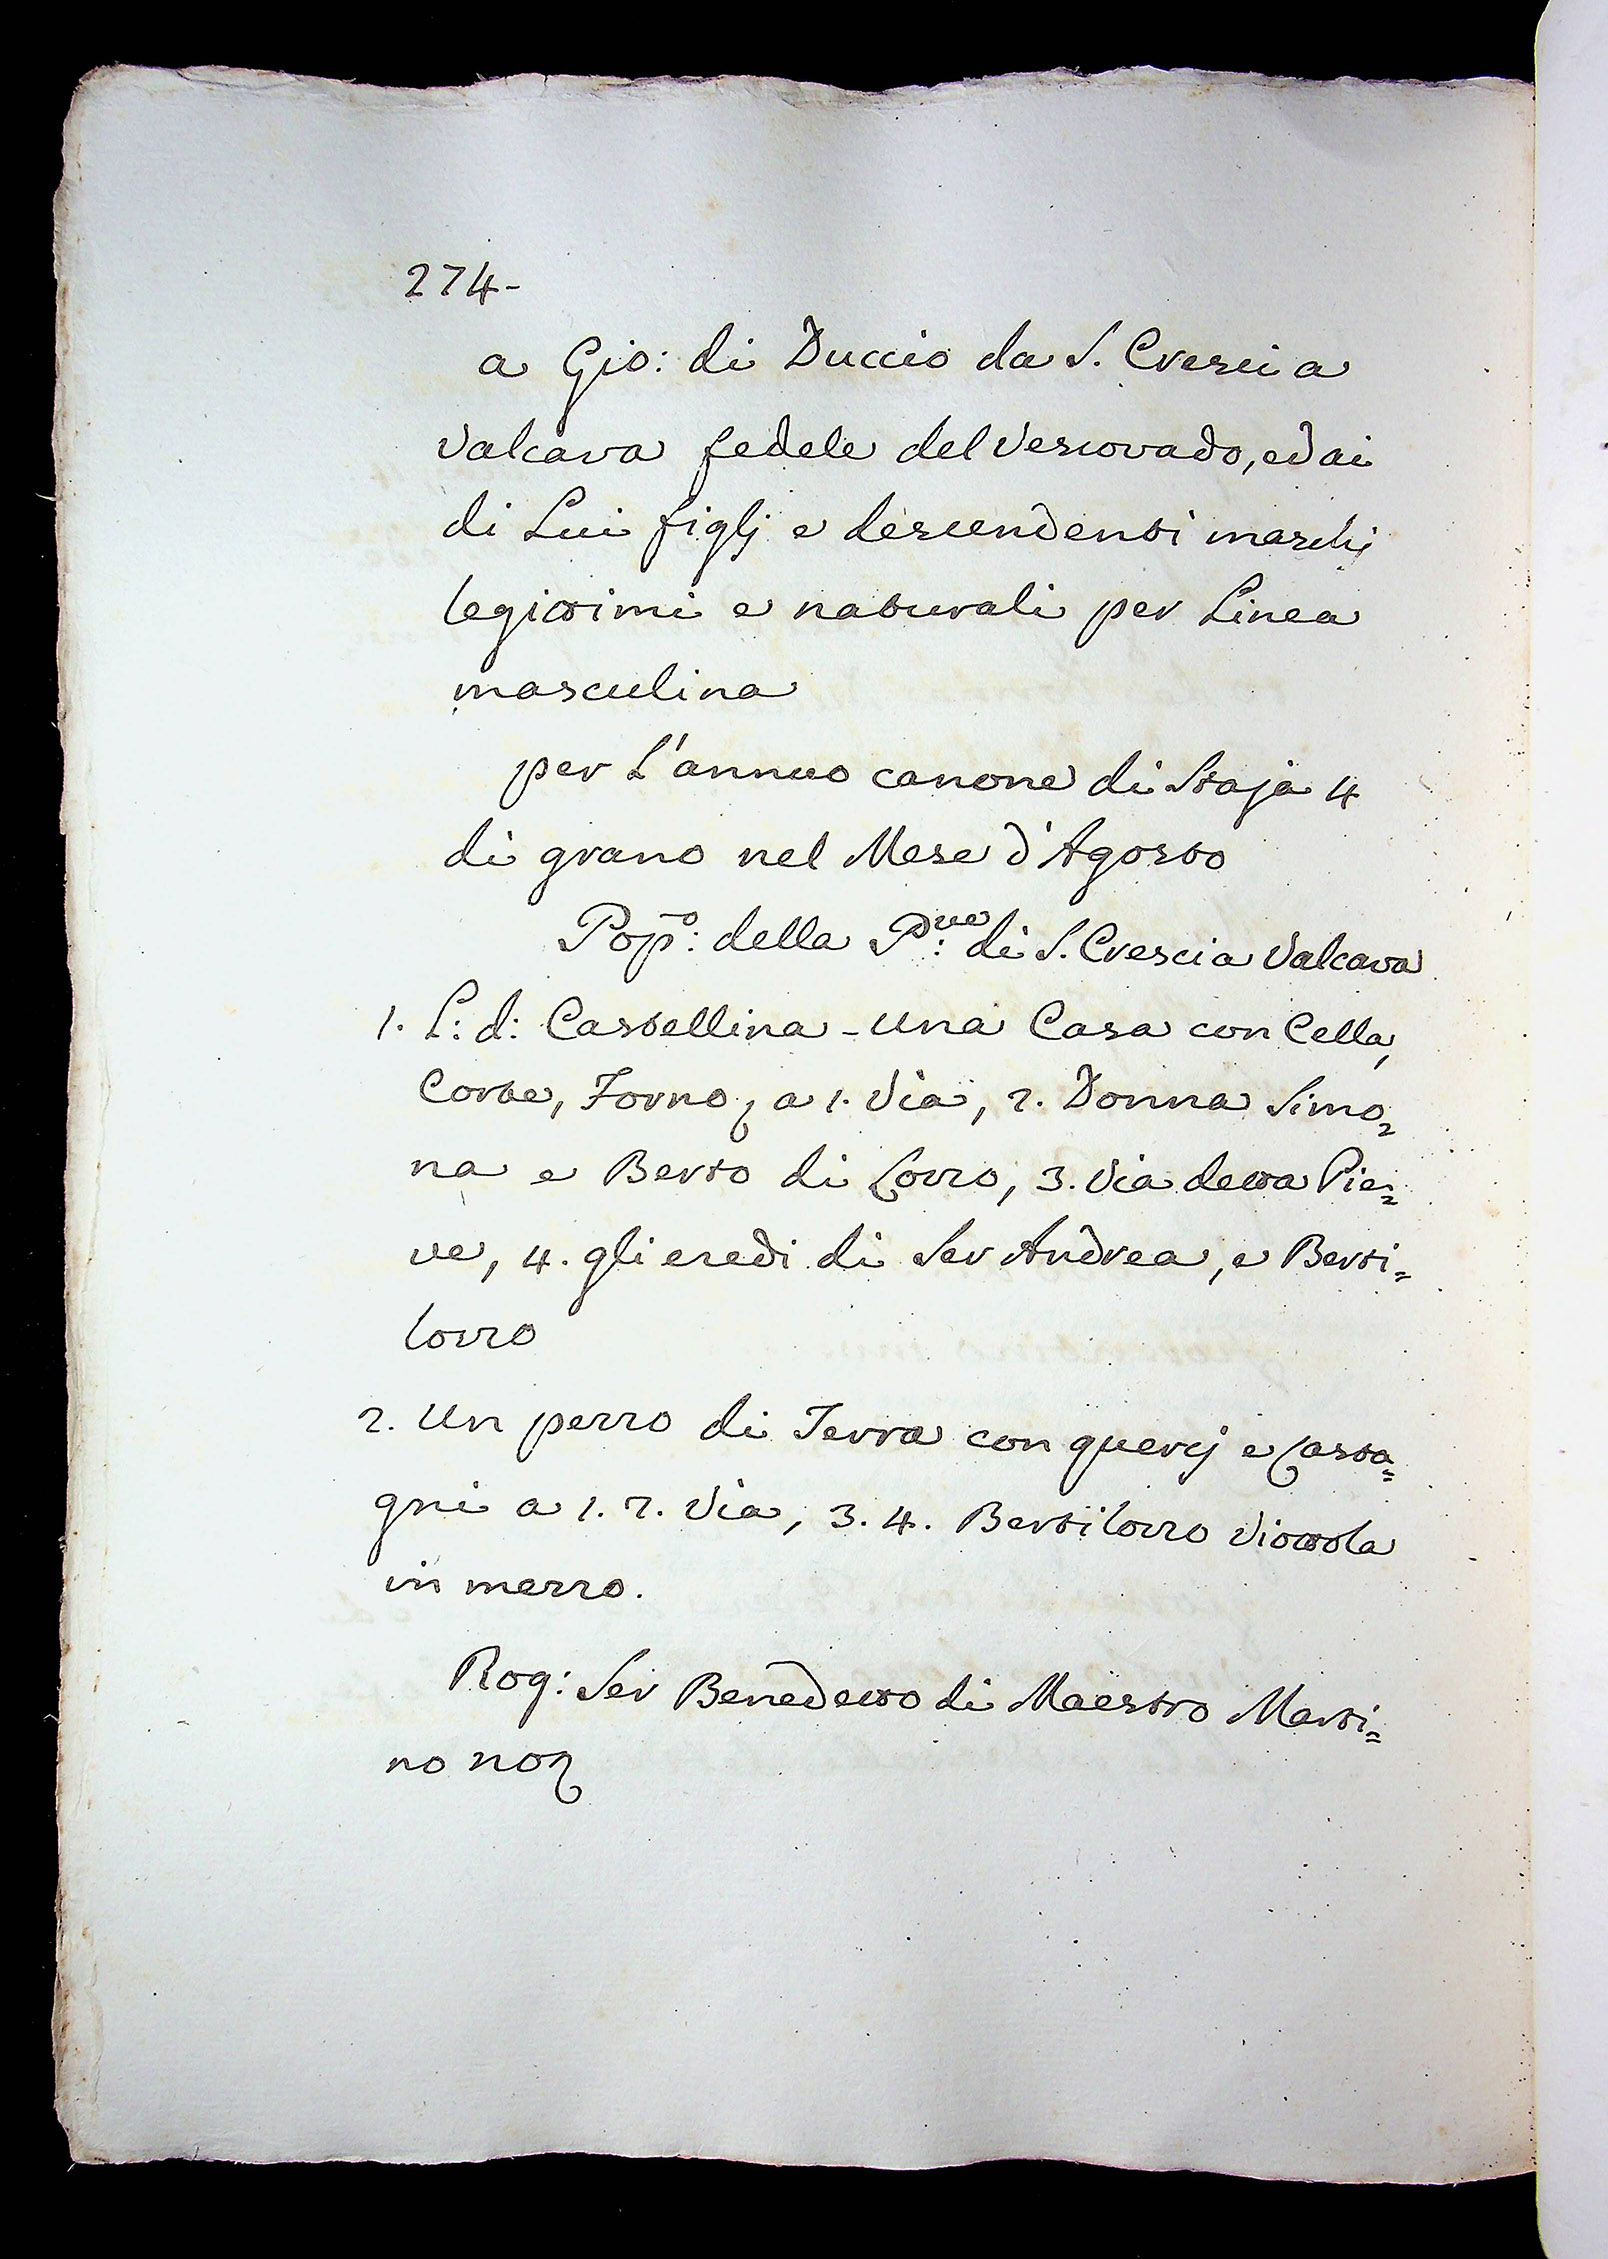 274-
a Gio: di Duccio da S. Cresci a
Valcava fedele del Vescovado, ed ai
di Lui figlj e descendenti maschi
legittimi e naturali per Linea
masculina
per L'annuo canone di Staja 4
di grano nel Mese d'Agosto
Pop:o della P:ve di S. Crescia Valcava
1. L: d: Castellina - una Casa con Cella,
Corte, Forno, a 1. Via, 2. Donna Simo=
na e Berto di Lozzo, 3. Via detta Pie=
ve, 4. gli eredi di Ser Andrea, e Berti=
lozzo
2. Un pezzo di Terra con quercj e Casta=
gni a 1. 2. Via, 3. 4. Bertilozzo Viottola
in mezzo.
Rog: Ser Benedetto di Maestro Marti=
no not